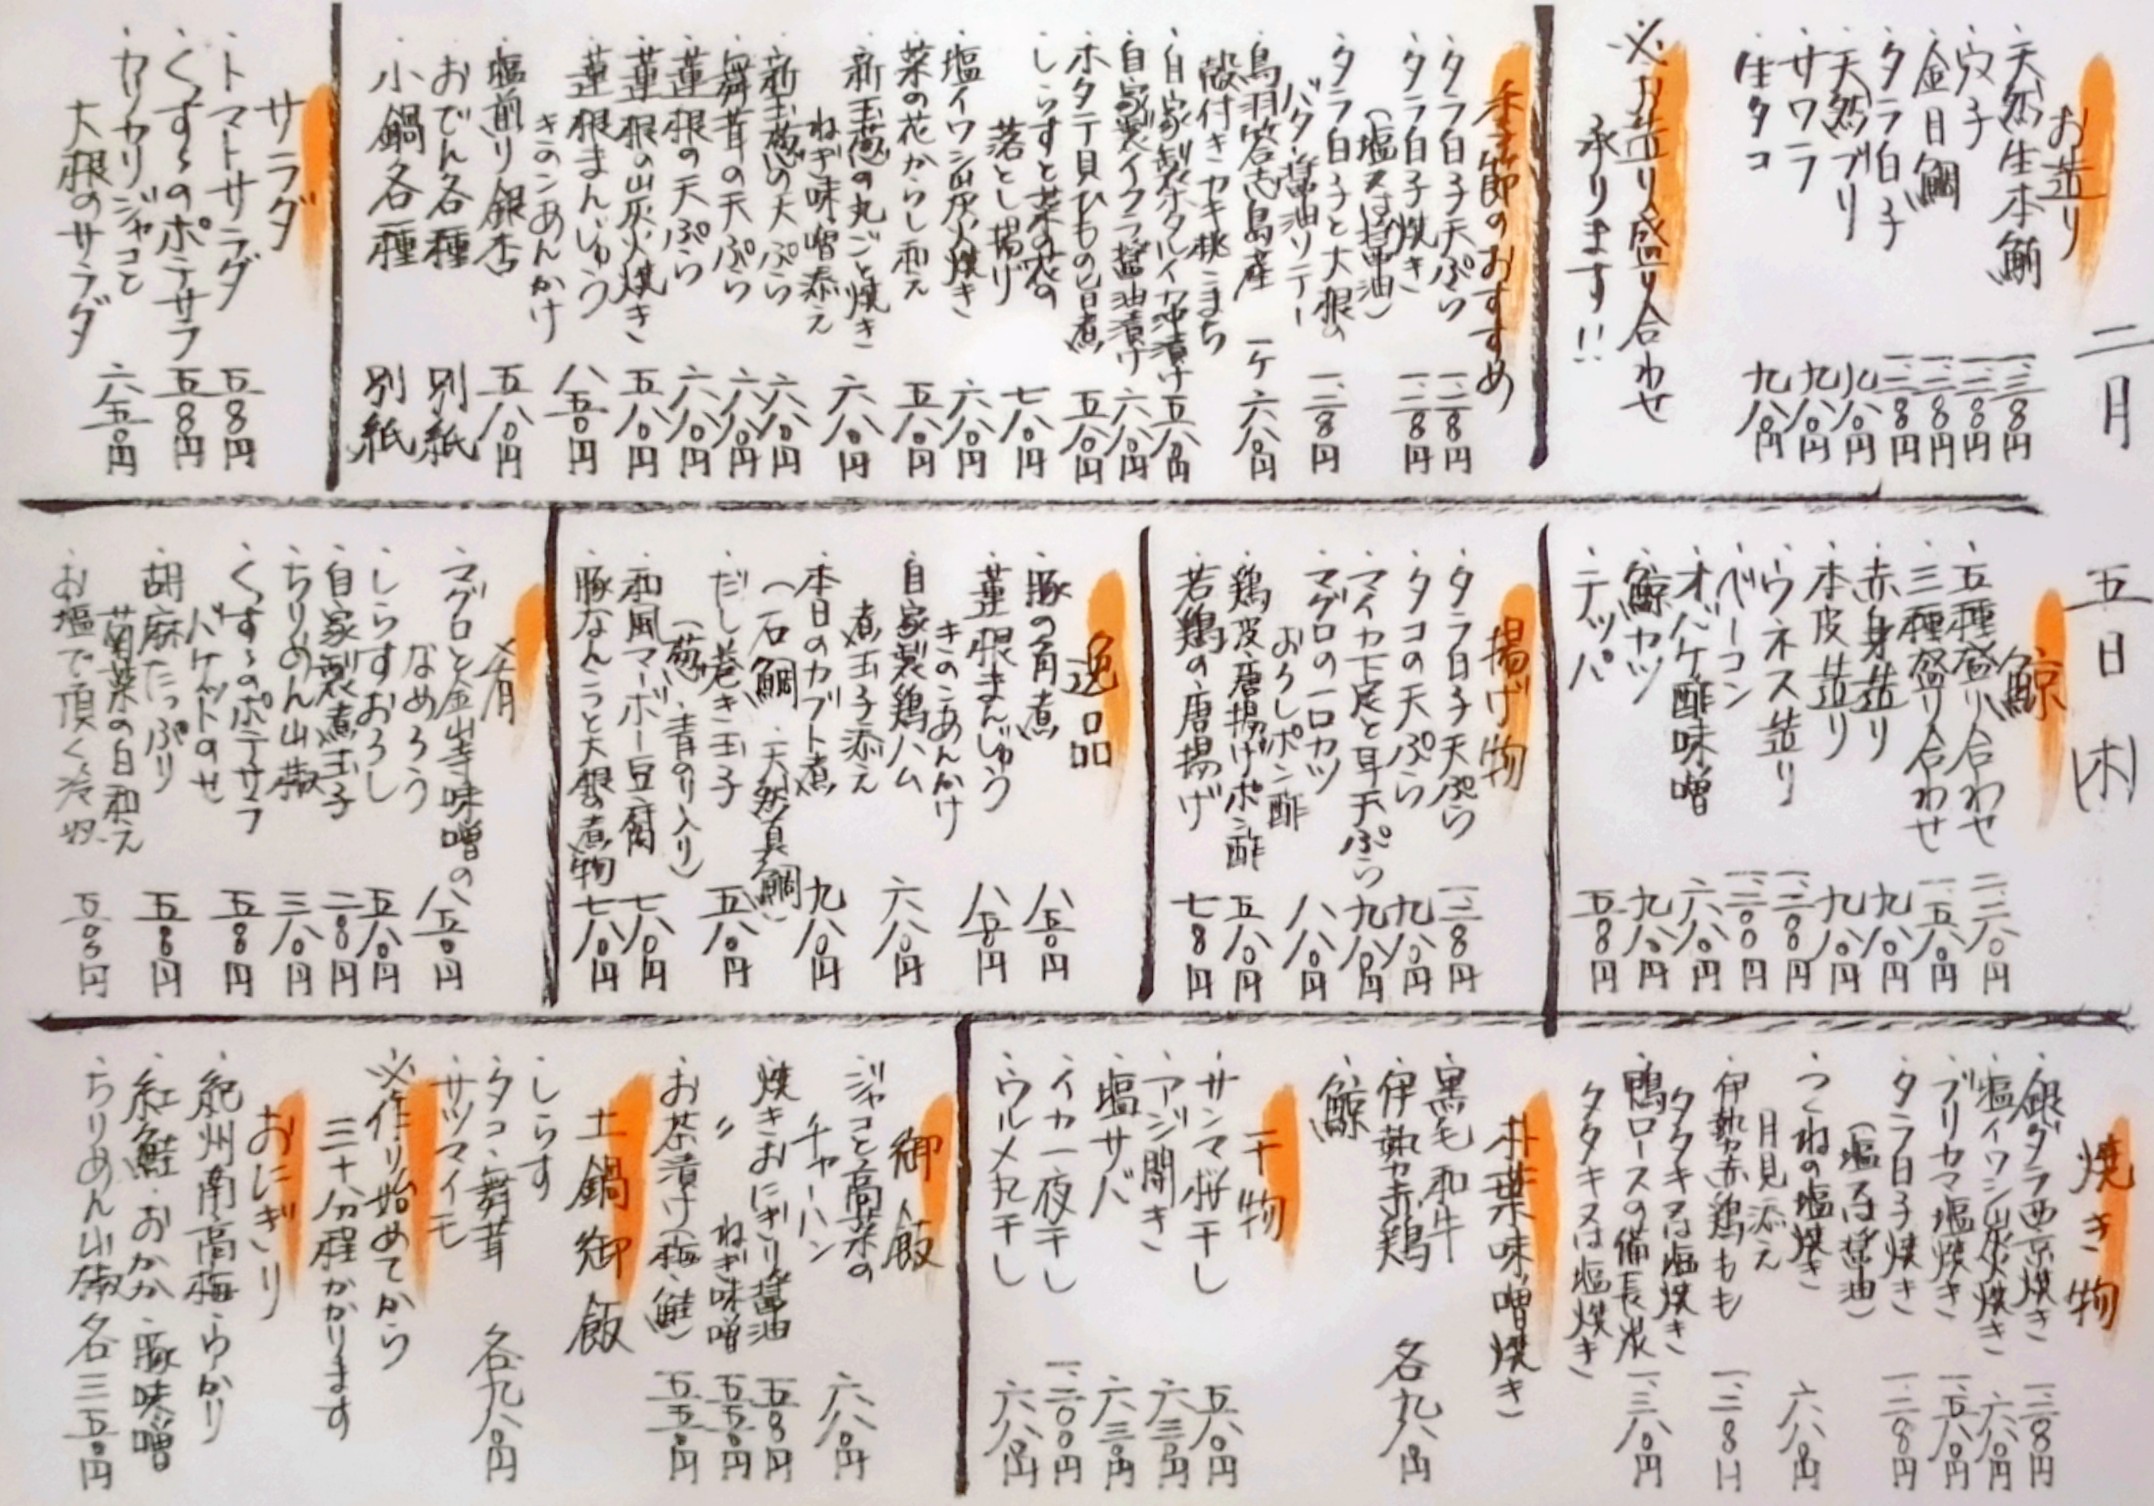 二月五日(木)
お造り
・天然生本鮪 一、三八〇円
・穴子 一、二八〇円
・金目鯛 一、二八〇円
・タラ白子 一、二八〇円
・天然ブリ 九八〇円
・サワラ 九八〇円
・生タコ 九八〇円
※お造り盛り合わせ
承ります!!
季節のおすすめ
・タラ白子天ぷら 一、二八〇円
・タラ白子焼き 一、二八〇円
(塩又は醤油)
・タラ白子と大根の
バター醤油ソテー 一、二八〇円
・鳥羽答志島産
殻付きカキ桃こまち 一ケ 六八〇円
・自家製ホタルイカ沖漬け 五八〇円
・自家製イクラ醤油漬け 六八〇円
・ホタテ貝ひもの旨煮 五八〇円
・しらすと菜の花の
落とし揚げ 七八〇円
・塩イワシ炭火焼き 六八〇円
・菜の花からし和え 五八〇円
・新玉葱の丸ごと焼き
ねぎ味噌添え 六八〇円
・新玉葱の天ぷら 六八〇円
・舞茸の天ぷら 六八〇円
・蓮根の天ぷら 六八〇円
・蓮根の炭火焼き 五八〇円
・蓮根まんじゅう
きのこあんかけ 八五〇円
・塩煎り銀杏 五八〇円
・おでん各種 別紙
・小鍋各種 別紙
サラダ
・トマトサラダ 五八〇円
・くすくすのポテサラ 五八〇円
・カリカリジャコと
大根のサラダ 六五〇円
鯨
・五種盛り合わせ 二、二八〇円
・三種盛り合わせ 一、五八〇円
・赤身造り 九八〇円
・本皮造り 九八〇円
・ウネス造り 一、二八〇円
・ベーコン 一、二〇〇円
・オバケ酢味噌 六八〇円
・鯨カツ 九八〇円
・テッパ 五八〇円
揚げ物
・タラ白子天ぷら 一、二八〇円
・タコの天ぷら 九八〇円
・マイカ下足と耳天ぷら 九八〇円
・マグロの一口カツ
おろしポン酢 八八〇円
・鶏皮唐揚げポン酢 五八〇円
・若鶏の唐揚げ 七八〇円
逸品
・豚の角煮 八五〇円
・蓮根まんじゅう
きのこあんかけ 八五〇円
・自家製鶏ハム
煮玉子添え 六八〇円
・本日のカブト煮 九八〇円
(石鯛・天然真鯛)
・だし巻き玉子 五八〇円
(葱・青のり入り)
・和風マーボー豆腐 七八〇円
・豚なんこつと大根の煮物 七八〇円
肴
・マグロと金山寺味噌の
なめろう 八五〇円
・しらすおろし 五八〇円
・自家製煮玉子 二八〇円
・ちりめん山椒 三八〇円
・くすくすのポテサラ
バケットのせ 五八〇円
・胡麻たっぷり
菊菜の白和え 五八〇円
・お塩で頂く冷奴 五〇〇円
焼き物
・銀ダラ西京焼き 一、三八〇円
・塩イワシ炭火焼き 六八〇円
・ブリカマ塩焼き 一、五八〇円
・タラ白子焼き 一、二八〇円
(塩又は醤油)
・つくねの塩焼き
月見添え 六八〇円
・伊勢赤鶏もも
タタキ又は塩焼き 一、二八〇円
・鴨ロースの備長炭
タタキ又は塩焼き 一、三八〇円
朴葉味噌焼き
・黒毛和牛
・伊勢赤鶏 各九八〇円
・鯨
干物
・サンマ桜干し 五八〇円
・アジ開き 六三〇円
・塩サバ 六三〇円
・イカ一夜干し 一、二〇〇円
・ウルメ丸干し 六八〇円
御飯
・ジャコと高菜の
チャーハン 六八〇円
・焼きおにぎり醤油 五五〇円
・〃 ねぎ味噌 五五〇円
・お茶漬け(梅・鮭) 五五〇円
土鍋御飯
・しらす
・タコ・舞茸 各九八〇円
・サツマイモ
※作り始めてから
三十分程かかります
おにぎり
・紀州南高梅・ゆかり
・紅鮭・おかか・豚味噌
・ちりめん山椒 各三五〇円